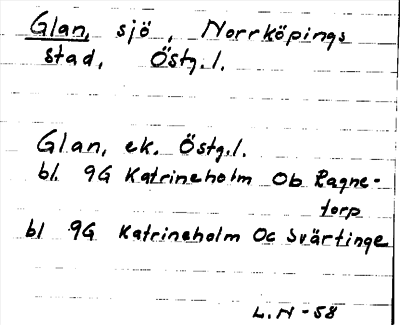 Glan, sjö, Norrköpings
stad, Östg.l.
Glan, ek. Östg.l.
bl. 9G Katrineholm Ob Ragne-
torp
bl 9G Katrineholm Oc Svärtinge
L.N-58